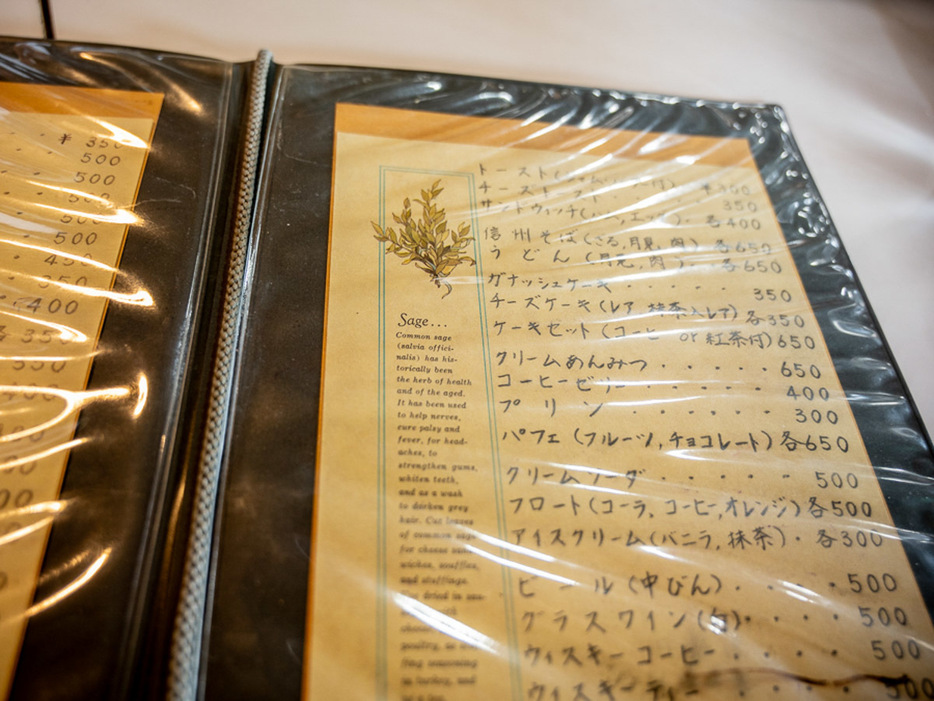 ¥ 350
500
500
500
500
450
350
400
各350
350
400
トースト
チーズトースト・・・・・・350
サンドウィッチ(ハム,エッグ)・各400
信州そば(ざる,月見,肉) 各650
うどん(月見,肉)・各650
ガナッシュケーキ・・・・・350
チーズケーキ(レア,抹茶入レア) 各350
ケーキセット(コーヒー or 紅茶付) 650
クリームあんみつ・・・・・650
コーヒーゼリー・・・・・・400
プリン・・・・・・300
パフェ(フルーツ,チョコレート) 各650
クリームソーダ・・・・・500
フロート(コーラ,コーヒー,オレンジ) 各500
アイスクリーム(バニラ,抹茶)・各300
ビール(中びん)・・・・500
グラスワイン(白)・・・・500
ウィスキーコーヒー・・・・500
ウィスキーティー・・・・500
Sage...
Common sage
(salvia offici-
nalis) has his-
torically been
the herb of health
and of the aged.
It has been used
to help nerves,
cure palsy and
fever, for head-
aches, to
strengthen gums,
whiten teeth,
and as a wash
to darken grey
hair. Cut leaves
of common sage
for cheese sand-
wiches, souffles,
and stuffings.